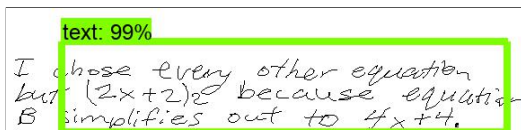 text: 99%
I chose every other equation
but (2x+2)2 because equation
B simplifies out to 4x+4.